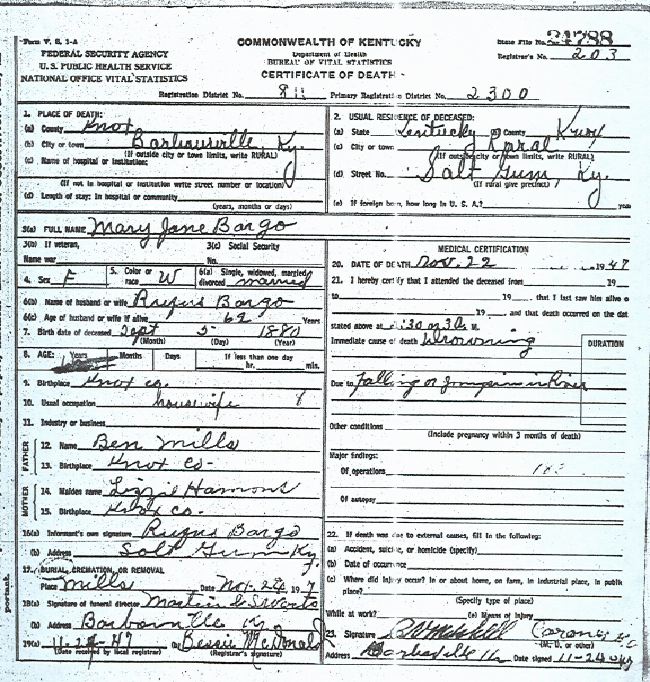 Form V. S. 1-A
FEDERAL SECURITY AGENCY
U. S. PUBLIC HEALTH SERVICE
NATIONAL OFFICE VITAL STATISTICS
COMMONWEALTH OF KENTUCKY
Department of Health
BUREAU OF VITAL STATISTICS
CERTIFICATE OF DEATH
State File No. 24788
Registrar's No. 203
Registration District No. Primary Registration District No. 2300
1. PLACE OF DEATH:
(a) County Knox
(b) City or town Barbourville, Ky.
(If outside city or town limits, write RURAL)
(c) Name of hospital or institution:
(If not in hospital or institution write street number or location)
(d) Length of stay: in hospital or community
(years, months or days)
2. USUAL RESIDENCE OF DECEASED:
(a) State Kentucky (b) County Knox
(c) City or town Rural
(If outside city or town limits, write RURAL)
(d) Street No. Salt Gum, Ky.
(If rural give precinct)
(e) If foreign born, how long in U. S. A.? years
3(a) FULL NAME Mary Jane Bargo
3(b) If veteran,
Name war
3(c) Social Security
No.
4. Sex F
5. Color or race W
6(a) Single, widowed, married, divorced married
6(b) Name of husband or wife Rufus Bargo
6(c) Age of husband or wife if alive 62 Years
7. Birth date of deceased Sept 5 1880
(Month) (Day) (Year)
8. AGE: Years Months Days If less than one day
hr. min.
9. Birthplace Knox co.
10. Usual occupation housewife
11. Industry or business
FATHER
12. Name Ben Mills
13. Birthplace Knox Co-
MOTHER
14. Maiden name Lizzie Hamons
15. Birthplace Knox co.
16(a) Informant's own signature Rufus Bargo
(b) Address Salt Gum Ky.
17. BURIAL, CREMATION, OR REMOVAL
Place Mills Date Nov. 24, 1947
18(a) Signature of funeral director
(b) Address Barbourville Ky
19(a) 11-24-47 (b) Bessie McDonald
(Date received by local registrar) (Registrar's signature)
MEDICAL CERTIFICATION
20. DATE OF DEATH Nov. 22 1947
21. I hereby certify that I attended the deceased from 19
to 19 that I last saw him alive o
19 and that death occurred on the dat
stated above at m.
Immediate cause of death Drowning
DURATION
Due to Falling or jumping in River
Other conditions
(Include pregnancy within 3 months of death)
Major findings:
Of operations
Of autopsy
22. If death was due to external causes, fill in the following:
(a) Accident, suicide, or homicide (specify)
(b) Date of occurrence
(c) Where did injury occur? In or about home, on farm, in industrial place, in public
place?
(Specify type of place)
While at work? (e) Means of injury
23. Signature Coroner
(M. D. or other)
Address Barbourville Ky Date signed 11-24-47
portant.